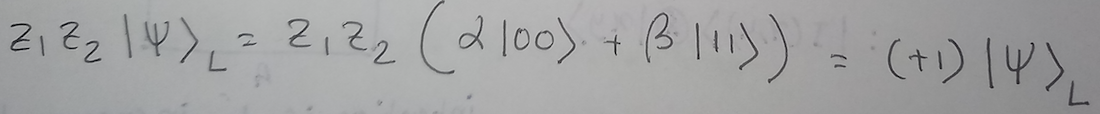 Z₁Z₂|Ψ⟩_L = Z₁Z₂(α|00⟩ + β|11⟩) = (+1)|Ψ⟩_L